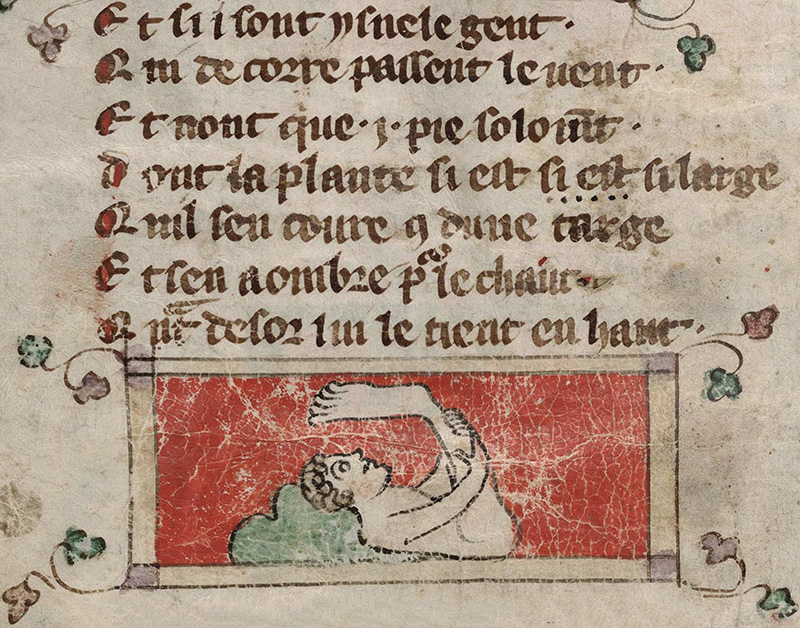 Et si i sont ysnele gent ·
Qui de corre passent le uent ·
Et nont que · j · pie solom̄t ·
dont la plante si est si est si large
Quil sen coure ꝯ dune targe
Et sen aombre p le chaut
Qnt desor lui le tient en haut ·